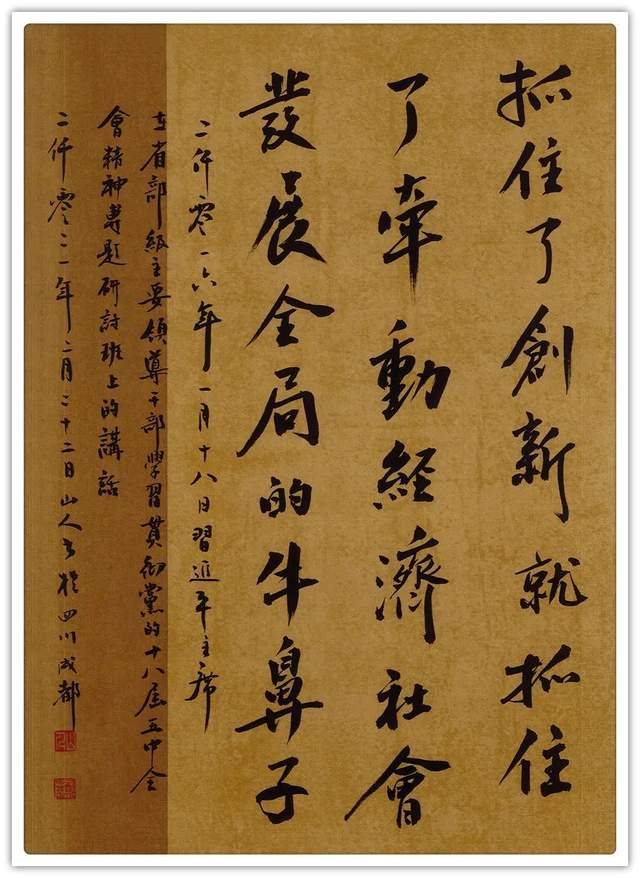 抓住了創新就抓住
了牽動經濟社會
發展全局的牛鼻子
二仟零一六年一月十八日習近平主席
在省部級主要領導干部學習貫彻黨的十八屆五中全
會精神專題研討班上的講話
二仟零二一年二月二十二日山人書於四川成都